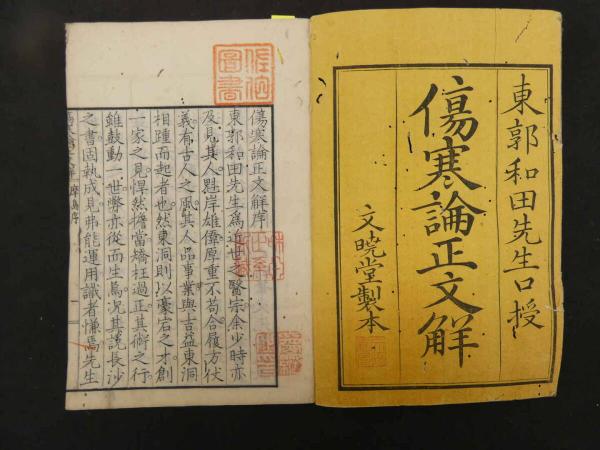 東郭和田先生口授
傷寒論正文解
文曉堂製本
圖書
傷寒論正文解序
東郭和田先生爲近世之醫宗余少時亦
及見其人魁岸雄偉厚重不苟合履方伏
義有古人之風其人品事業與吉益東洞
相踵而起者也然東洞則以豪宕之才創
一家之見悍然擔當矯枉過正其術之行
雖鼓動一世弊亦從而生焉況其説長沙
之書固執成見弗能運用識者慊焉先生